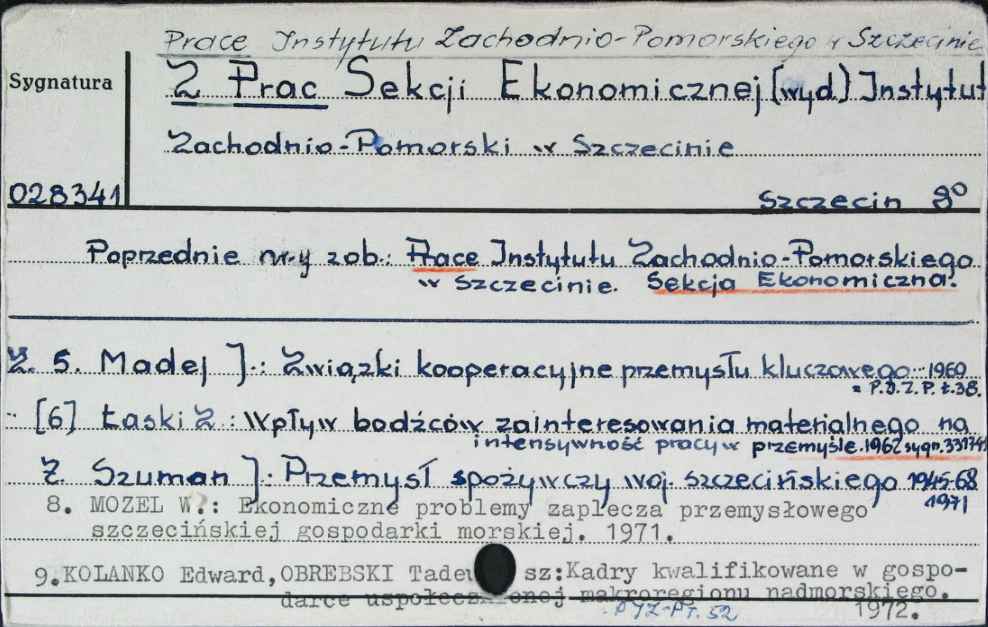 Prace Instytutu Zachodnio-Pomorskiego w Szczecinie
Sygnatura
Z Prac Sekcji Ekonomicznej (wyd.) Instytut
Zachodnio-Pomorski w Szczecinie
028341
Szczecin 8°
Poprzednie nr-y zob.: Prace Instytutu Zachodnio-Pomorskiego
w Szczecinie. Sekcja Ekonomiczna.
Z. 5. Madej J.: Związki kooperacyjne przemysłu kluczowego 1969
= P.I.Z.P. t.38.
[6] Łaski Z: Wpływ bodźców zainteresowania materialnego na
intensywność pracy w przemyśle. 1962 sygn.
7. Szuman J: Przemysł spożywczy woj. szczecińskiego 1945-68
1971
8. MOZEL W.: Ekonomiczne problemy zaplecza przemysłowego
szczecińskiej gospodarki morskiej. 1971.
9. KOLANKO Edward, OBREBSKI Tadeu sz: Kadry kwalifikowane w gospo-
darce uspołecznionej makroregionu nadmorskiego.
PIZ-PT. 52 1972.